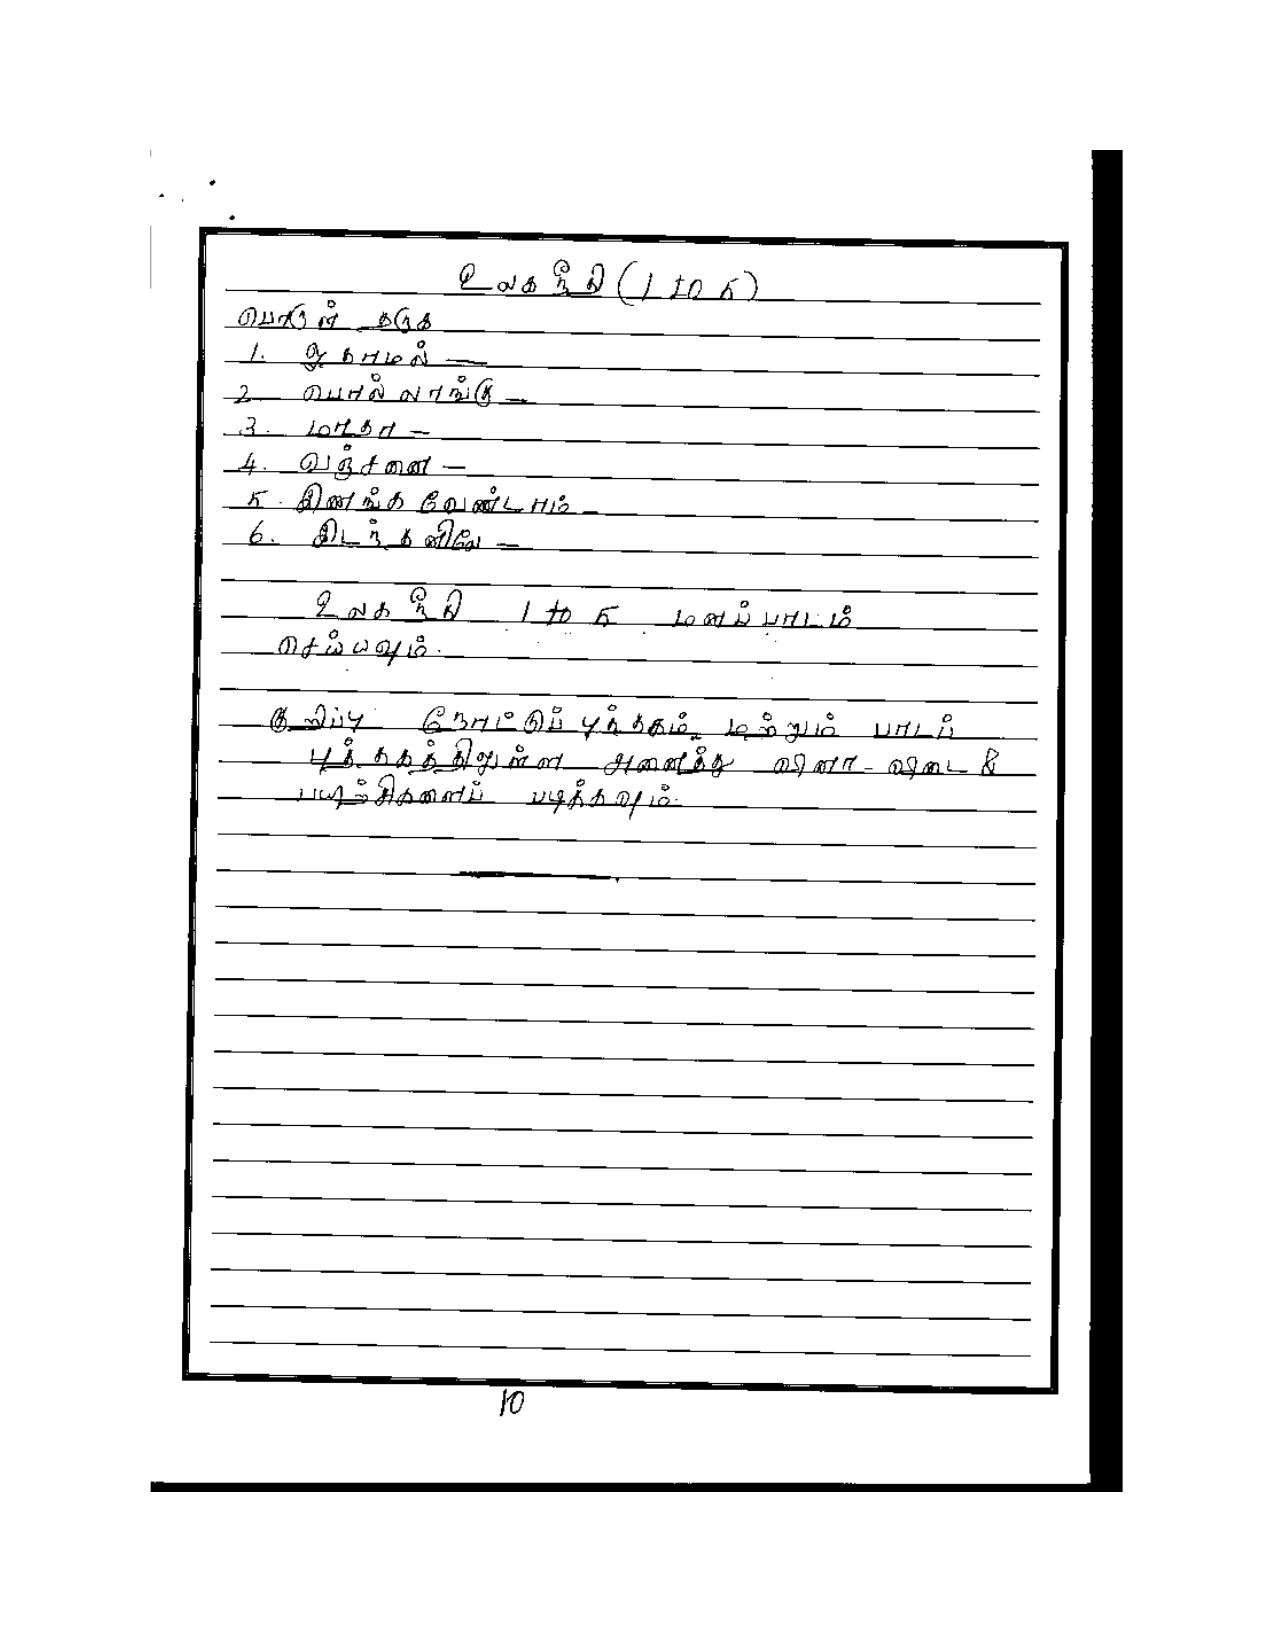 உலகநீதி (1 to 5)
பொருள் தருக
1. ஆகாமல் —
2. பொல்லாங்கு —
3. மாதா —
4. வஞ்சனை —
5. இணங்க வேண்டாம் —
6. இடந்தனிலே —
உலகநீதி 1 to 5 மனப்பாடம்
செய்யவும்.
குறிப்பு நோட்டுப் புத்தகம், மற்றும் பாடப்
புத்தகத்திலுள்ள அனைத்து வினா - விடை &
பயிற்சிகளைப் படிக்கவும்.
10